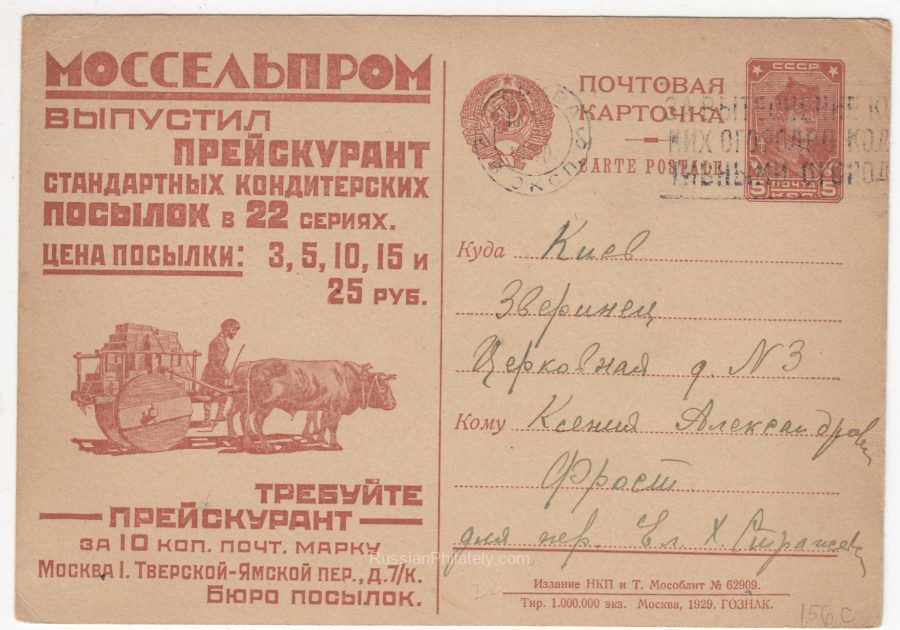 МОССЕЛЬПРОМ
ВЫПУСТИЛ
ПРЕЙСКУРАНТ
СТАНДАРТНЫХ КОНДИТЕРСКИХ
ПОСЫЛОК В 22 СЕРИЯХ.
ЦЕНА ПОСЫЛКИ: 3, 5, 10, 15 И
25 РУБ.
ТРЕБУЙТЕ
ПРЕЙСКУРАНТ
ЗА 10 КОП. ПОЧТ. МАРКУ
МОСКВА 1. ТВЕРСКОЙ-ЯМСКОЙ ПЕР., Д. 7/К.
БЮРО ПОСЫЛОК.
ПОЧТОВАЯ
КАРТОЧКА
CARTE POSTALE
СССР
5 ПОЧТА 5
КОП.
МОСКВА
ЭКСПЕД
ЗА ВЫТЕСНЕНИЕ
Куда Киев
Зверинец
Церковная д. N 3
Кому Ксения Александров
Фрост
для пер. Ел. Х
Издание НКП и Т. Мособлит № 62909.
Тир. 1.000.000 экз. Москва, 1929. ГОЗНАК.
156 c
RussianPhilately.com